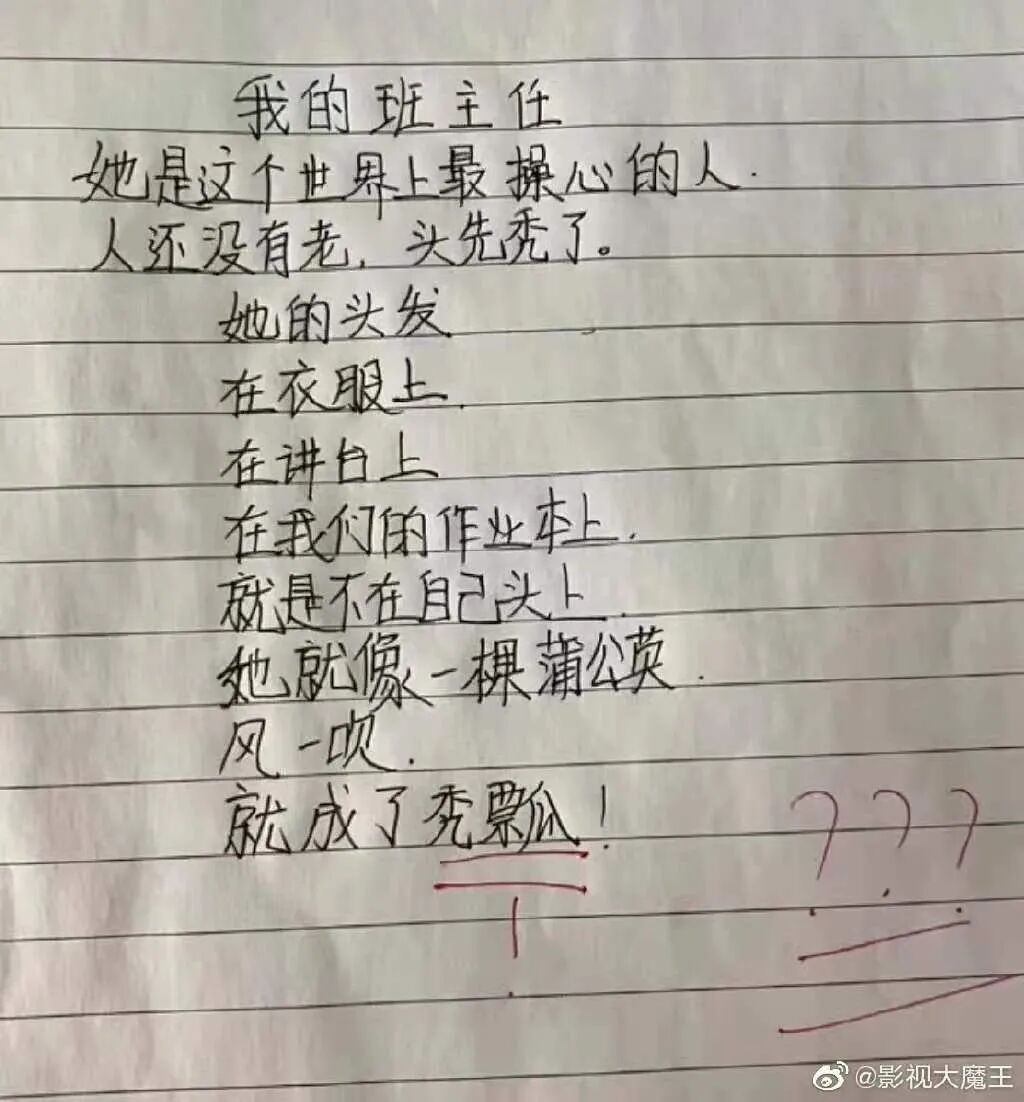 我的班主任
她是这个世界上最操心的人.
人还没有老, 头先秃了。
她的头发
在衣服上.
在讲台上
在我们的作业本上.
就是不在自己头上.
她就像一棵蒲公英.
风一吹.
就成了秃瓢!
???
@影视大魔王